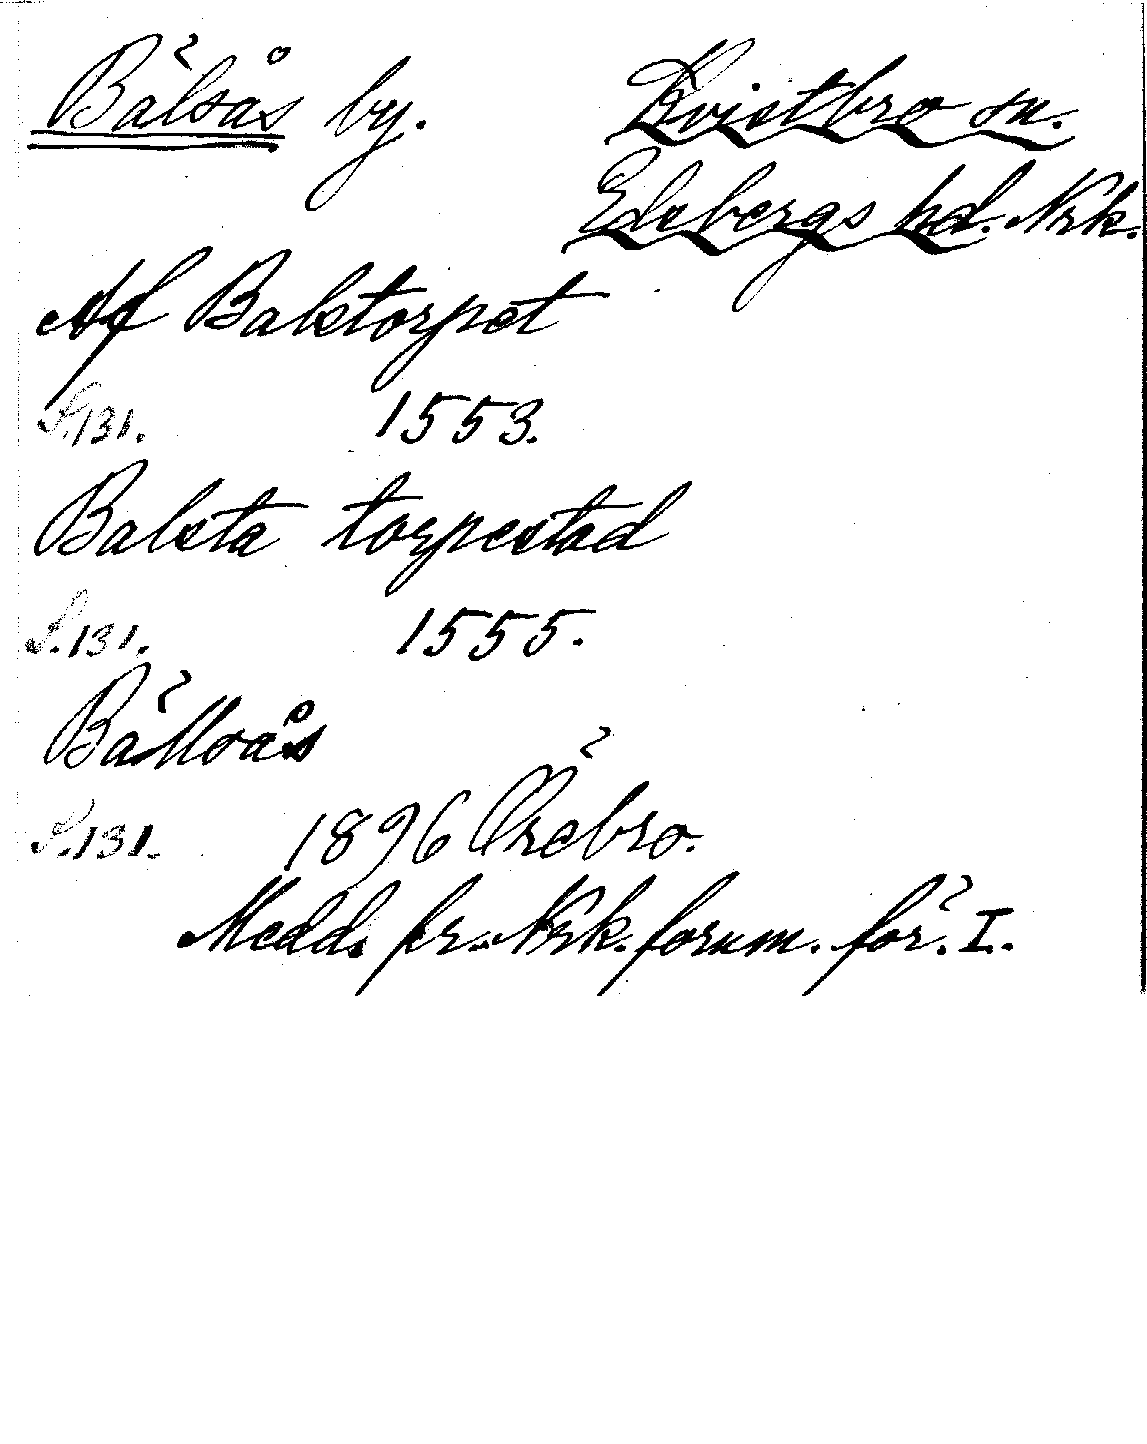 Bälsås by. Kvistbro sn.
Edsbergs hd. Nrk.
Af Balstorpet
S. 131. 1553.
Balsta torpestad
S. 131. 1555.
Bällsås
S. 131. 1896 Örebro.
Medd. fr. Nrk. fornm. för. I.